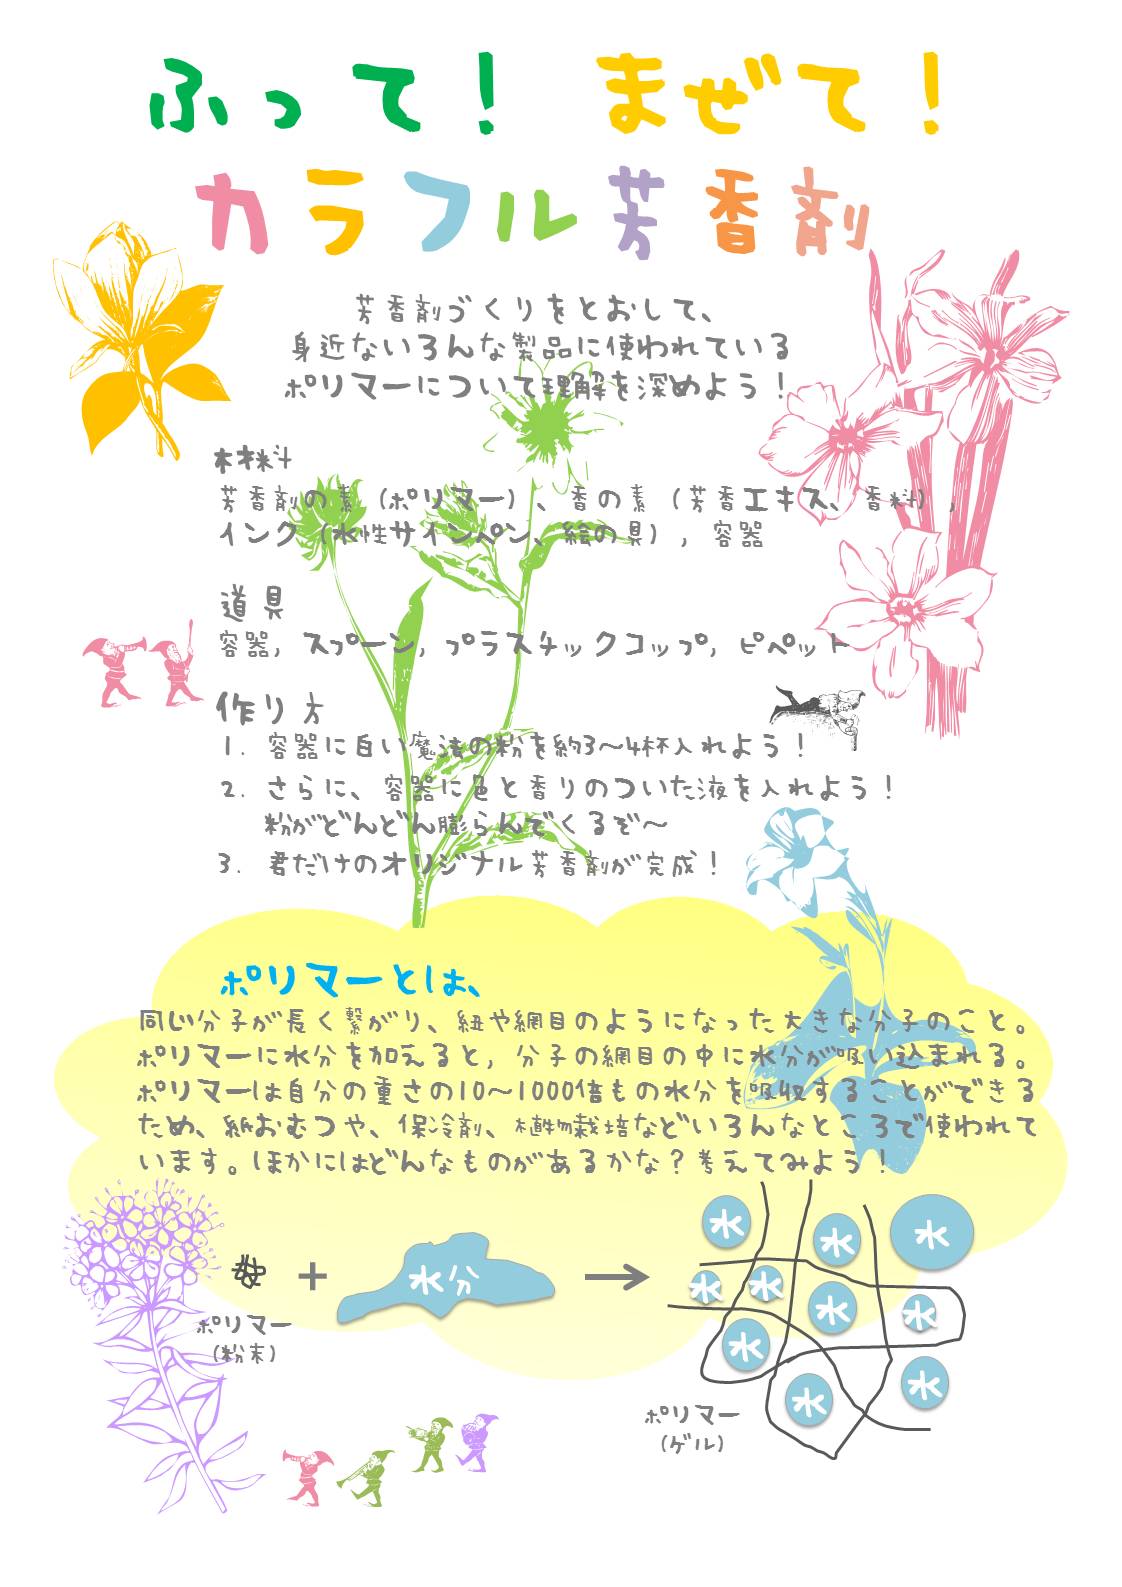 ふって！ まぜて！
カラフル芳香剤
芳香剤づくりをとおして、
身近ないろんな製品に使われている
ポリマーについて理解を深めよう！
材料
芳香剤の素（ポリマー）、香の素（芳香エキス、香料）,
インク（水性サインペン、絵の具）, 容器
道具
容器, スプーン, プラスチックコップ, ピペット
作り方
1. 容器に白い魔法の粉を約3～4杯入れよう！
2. さらに、容器に色と香りのついた液を入れよう！
粉がどんどん膨らんでくるぞ～
3. 君だけのオリジナル芳香剤が完成！
ポリマーとは、
同じ分子が長く繋がり、紐や網目のようになった大きな分子のこと。
ポリマーに水分を加えると, 分子の網目の中に水分が吸い込まれる。
ポリマーは自分の重さの10～1000倍もの水分を吸収することができる
ため、紙おむつや、保冷剤、植物栽培などいろんなところで使われて
います。ほかにはどんなものがあるかな？考えてみよう！
水
水
水
水
水
水
水
水
水
水
＋
水分
→
ポリマー
（粉末）
ポリマー
（ゲル）